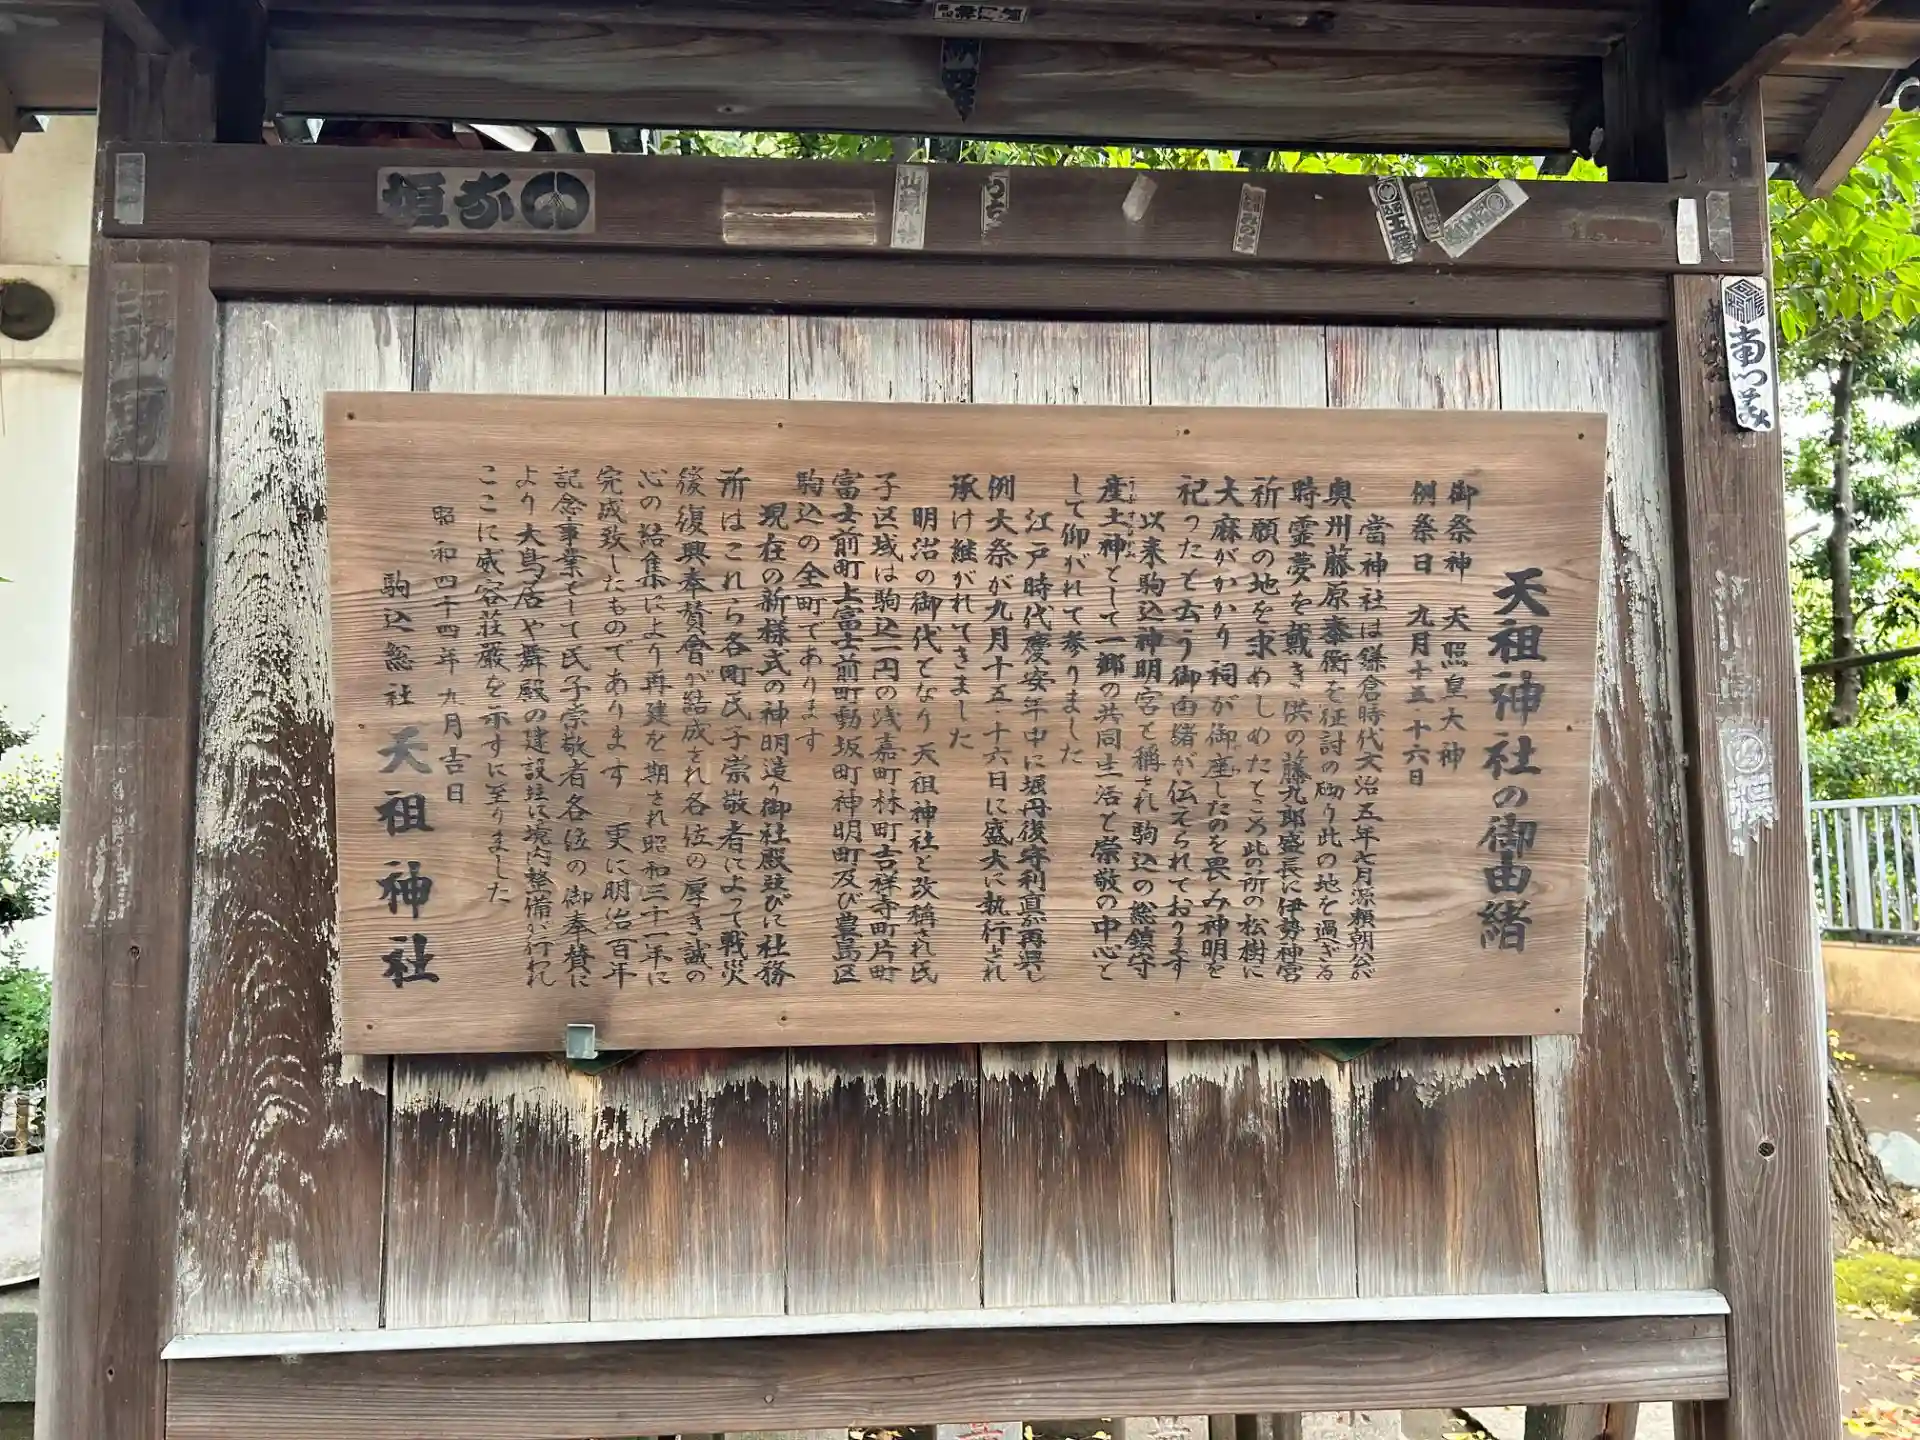 天祖神社の御由緒
御祭神　天照皇大神
例祭日　九月十五 十六日
當神社は鎌倉時代文治五年七月源頼朝公が
奥州藤原泰衡を征討の砌り此の地を過ぎる
時霊夢を戴き供の藤九郎盛長に伊勢神宮
祈願の地を求めしめたところ此の所の松樹に
大麻がかかり祠が御産したのを畏み神明を
祀ったと云う御由緒が伝えられております
以来駒込神明宮と稱され駒込の総鎮守
産土神として一郷の共同生活と崇敬の中心と
して仰がれて参りました
江戸時代慶安年中に堀丹後守利直が再興し
例大祭が九月十五 十六日に盛大に執行され
承け継がれてきました
明治の御代となり天祖神社と改稱され氏
子区域は駒込一円の浅嘉町林町吉祥寺町片町
富士前町上富士前町動坂町神明町及び豊島区
駒込の全町であります
現在の新様式の神明造り御社殿竝びに社務
所はこれら各町氏子崇敬者によって戦災
後復興奉賛會が結成され各位の厚き誠の
心の結集により再建を期され昭和三十一年に
完成致したものであります　更に明治百年
記念事業として氏子崇敬者各位の御奉賛に
より大鳥居や舞殿の建設竝に境内整備が行われ
ここに威容荘厳を示すに至りました
昭和四十四年九月吉日
駒込総社 天祖神社